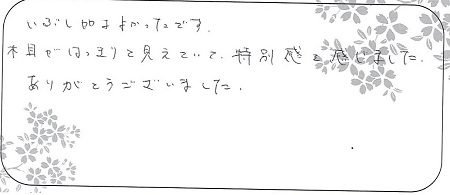 いぶし加工よかったです。
木目がはっきりと見えていて、特別感を感じました。
ありがとうございました。